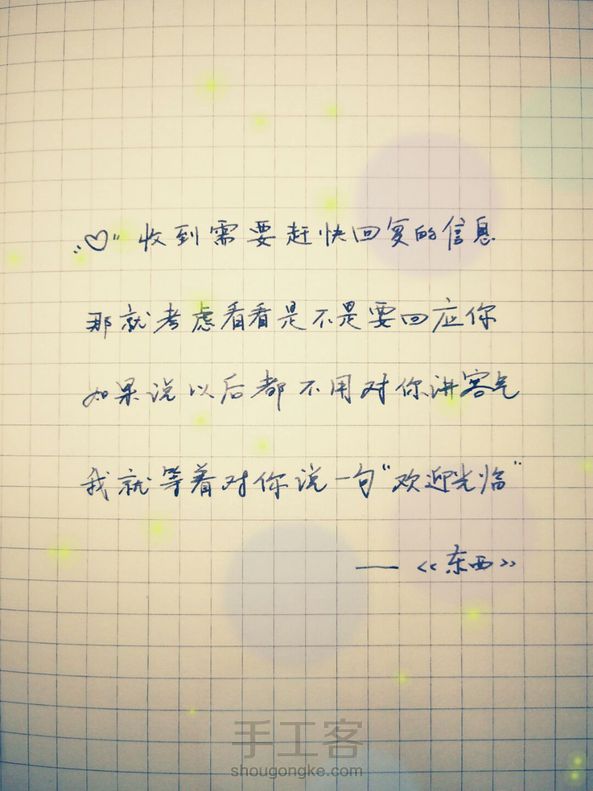 ♡收到需要赶快回复的信息
那就考虑看看是不是要回应你
如果说以后都不用对你讲客气
我就等着对你说一句“欢迎光临”
——《东西》
手工客
shougongke.com